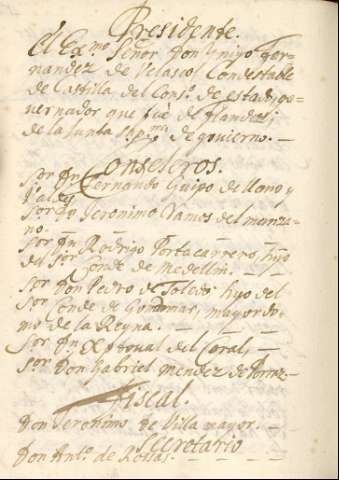 Presidente.
El Ex.mo Señor Don Yñigo Fer-
nandez de Velasco Condestable
de Castilla del Cons.o de estado go-
vernador que fue de flandes;
de la Junta Sup.ma de govierno.
Consejeros.
Sor Dn Fernando Quipo de llano y
Valdes
Sor Do Jeronimo Ramos del manza-
no.
Sor Dn Rodrigo Portacarrero, hijo
del Sor Conde de Medellin.
Sor Don Pedro de Toledo hijo del
Sor Conde de Gondomar, mayordo-
mo de la Reyna.
Sor Dn Xptoval del Corral,
Sor Don Gabriel Mendez de Porraz-
fiscal.
Don Jeronimo de Villa mayor.
Secretario
Don Ant.o de Rosas.